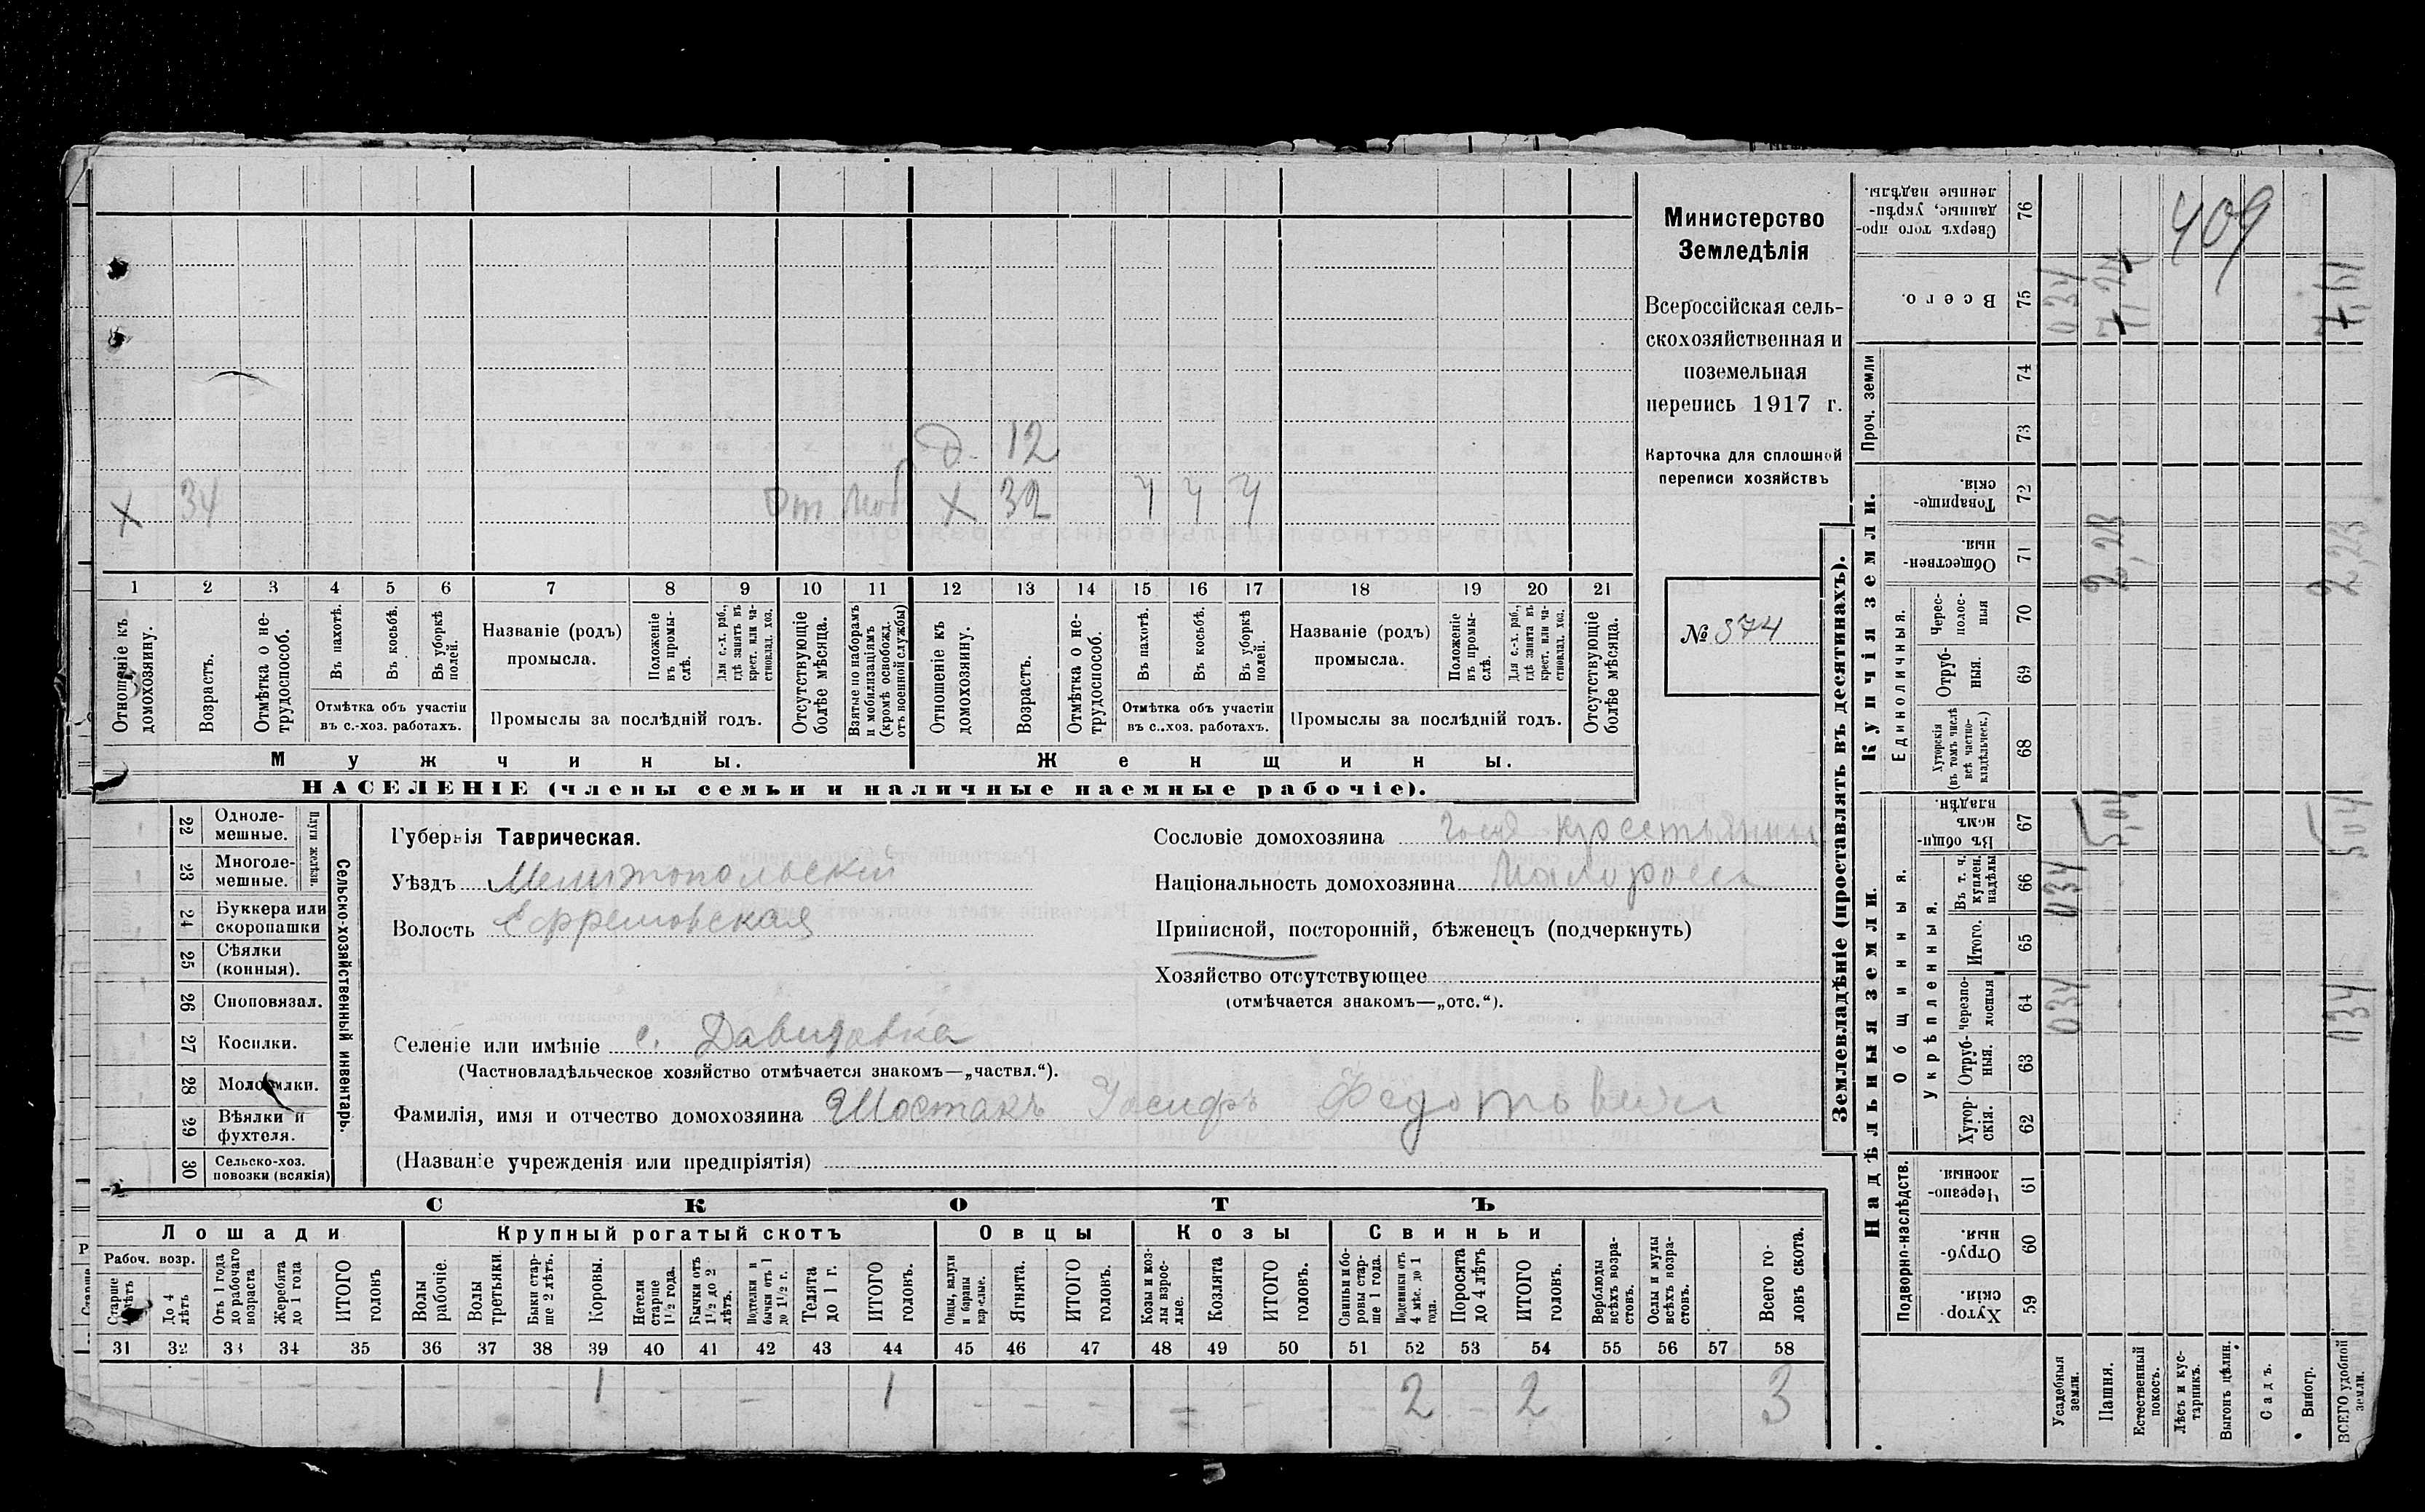 Министерство
Земледѣлія
Всероссійская сель-
скохозяйственная и
поземельная
перепись 1917 г.
Карточка для сплошной
переписи хозяйствъ
№ 374
409
д. 12
х 34 От Моб х 32 ч ч ч
1 2 3 4 5 6 7 8 9 10 11 12 13 14 15 16 17 18 19 20 21
Отношеніе къ домохозяину.
Возрастъ.
Отмѣтка о не-трудоспособ.
Въ пахотѣ.
Въ косьбѣ.
Въ уборкѣ полей.
Отмѣтка объ участіи
въ с.-хоз. работахъ.
Названіе (родъ)
промысла.
Положеніе въ промы-слѣ.
Для с.-х. раб., гдѣ занятъ въ крест. или ча-стновлад. хоз.
Промыслы за послѣдній годъ.
Отсутствующіе болѣе мѣсяца.
Взятые по наборамъ и мобилизаціямъ (кромѣ освобожд. отъ военной службы)
Отношеніе къ домохозяину.
Возрастъ.
Отмѣтка о не-трудоспособ.
Въ пахотѣ.
Въ косьбѣ.
Въ уборкѣ полей.
Отмѣтка объ участіи
въ с.-хоз. работахъ.
Названіе (родъ)
промысла.
Положеніе въ промы-слѣ.
Для с.-х. раб., гдѣ занята въ крест. или ча-стновлад. хоз.
Промыслы за послѣдній годъ.
Отсутствующіе болѣе мѣсяца.
Мужчины. Женщины.
НАСЕЛЕНІЕ (члены семьи и наличные наемные рабочіе).
Сельско-хозяйственный инвентарь.
Плуги желѣзн.
22 Одноле-мешные.
23 Многоле-мешные.
24 Буккера или скоропашки
25 Сѣялки (конныя).
26 Сноповязал.
27 Косилки.
28 Молотилки.
29 Вѣялки и фухтеля.
30 Сельско-хоз. повозки (всякія)
Губернія Таврическая.
Уѣздъ Мелитопольскій
Волость Ефремовская
Сословіе домохозяина госуд. крестьянинъ
Національность домохозяина Малороссъ
Приписной, посторонній, бѣженецъ (подчеркнуть)
Хозяйство отсутствующее
(отмѣчается знакомъ—„отс.“).
Селеніе или имѣніе с. Давидовка
(Частновладѣльческое хозяйство отмѣчается знакомъ—„частвл.“).
Фамилія, имя и отчество домохозяина Шостакъ Іосифъ Федотовичъ
(Названіе учрежденія или предпріятія)
СКОТЪ
Лошади Крупный рогатый скотъ Овцы Козы Свиньи
Рабоч. возр.
Старше 4 лѣтъ
До 4 лѣтъ
Отъ 1 года до рабочаго возраста
Жеребята до 1 года
ИТОГО головъ
Волы рабочіе.
Волы третьяки.
Быки стар-ше 2 лѣтъ.
Коровы.
Нетели старше 1½ года.
Бычки отъ 1½ до 2 лѣтъ.
Подтелки и бычки отъ 1 до 1½ г.
Телята до 1 г.
ИТОГО головъ.
Овцы, валухи и бараны взрослые.
Ягнята.
ИТОГО головъ.
Козы и коз-лы взрос-лые.
Козлята
ИТОГО головъ.
Свиньи и бо-ровы стар-ше 1 года.
Подсвинки отъ 4 мѣс. до 1 года.
Поросята до 4 лѣтъ
ИТОГО головъ.
Верблюды всѣхъ возра-стовъ.
Ослы и мулы всѣхъ возра-стовъ.
Всего го-ловъ скота.
31 32 33 34 35 36 37 38 39 40 41 42 43 44 45 46 47 48 49 50 51 52 53 54 55 56 57 58
1 1 2 2 3
Землевладѣніе (проставлять въ десятинахъ).
Надѣльныя земли. Купчія земли. Проч. земли
Подворно-наслѣдств.
Общинныя.
Укрѣпленныя.
Единоличныя.
59 Хутор-скія.
60 Отруб-ныя.
61 Черезпо-лосныя.
62 Хутор-скія.
63 Отруб-ныя.
64 черезпо-лосныя
65 Итого.
66 Въ т. ч. куплен. надѣлы
67 Въ общи-номъ владѣн.
68 Хуторскія (въ томъ числѣ всѣ частно-владѣльческ.)
69 Отруб-ныя.
70 Черес-полос-ныя
71 Обществен-ныя.
72 Товарище-скія.
73
74
75 Всего.
76 Сверхъ того про-данные, укрѣп-ленные надѣлы.
Усадебныя земли. 034 034 034
Пашня. 5,04 2,23
Естественный покосъ.
Лѣсъ и кус-тарникъ.
Выгонъ цѣлин.
Садъ.
Виногр.
ВСЕГО удобной земли. 034 504 2,23 7,61